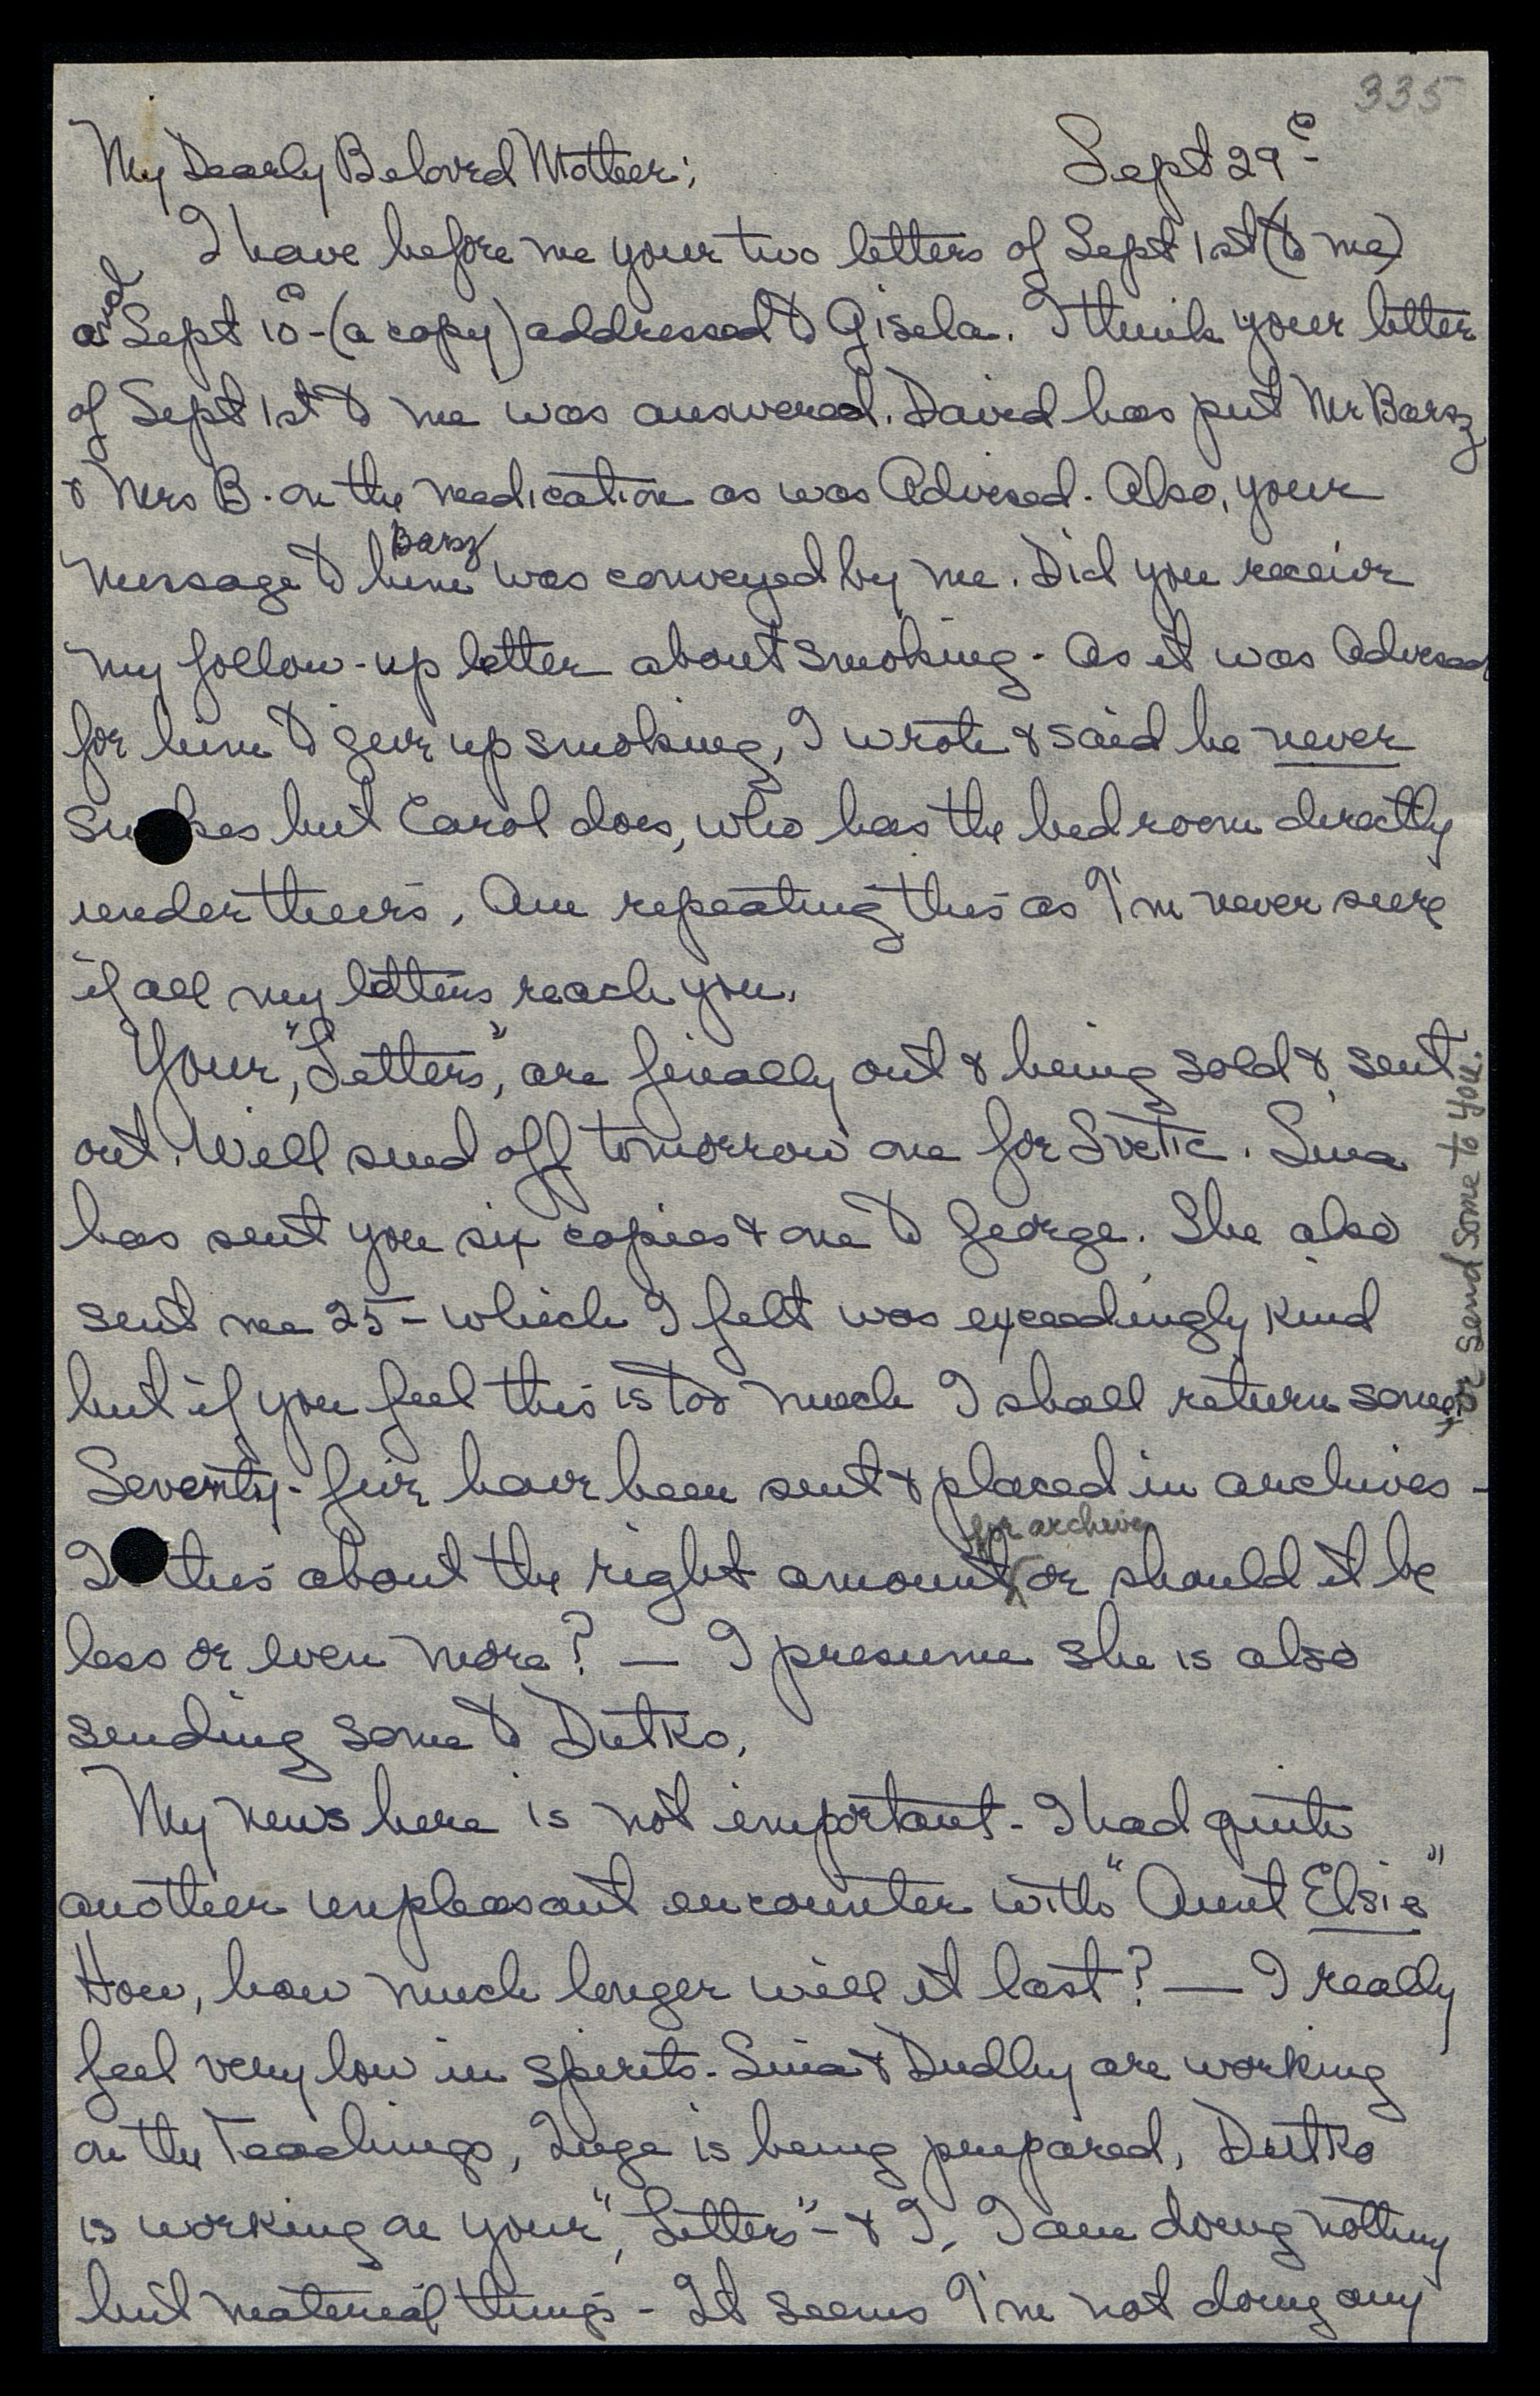 335
My Dearly Beloved Mother; Sept 29th
I have before me your two letters of Sept 1st (to me)
and Sept 10th - (a copy) addressed to Gisela. I think your letter
of Sept 1st to me was answered. David has put Mr Barsz
& Mrs B. on the medication as was Advised. Also, your
message to him Barsz was conveyed by me. Did you receive
my follow-up letter about smoking - As it was Advised
for him to give up smoking, I wrote & said he never
smokes but Carol does, who has the bedroom directly
under theirs, Am repeating this as I'm never sure
if all my letters reach you.
Your, "Letters", are finally out & being sold & sent
out. Will send off tomorrow one for Svetic. Sina
has sent you six copies & one to George. She also
sent me 25 - which I felt was exceedingly kind
but if you feel this is too much I shall return some, or send some to you.
Seventy-five have been sent & placed in archives -
Is this about the right amount for archives or should it be
less or even more? — I presume she is also
sending some to Dutko.
My news here is not important - I had quite
another unpleasant encounter with "Aunt Elsie"
How, how much longer will it last? — I really
feel very low in spirits. Sina & Dudley are working
on the Teachings, Inge is being prepared, Dutko
is working on your, "Letters" - & I, I am doing nothing
but material things - It seems I'm not doing any